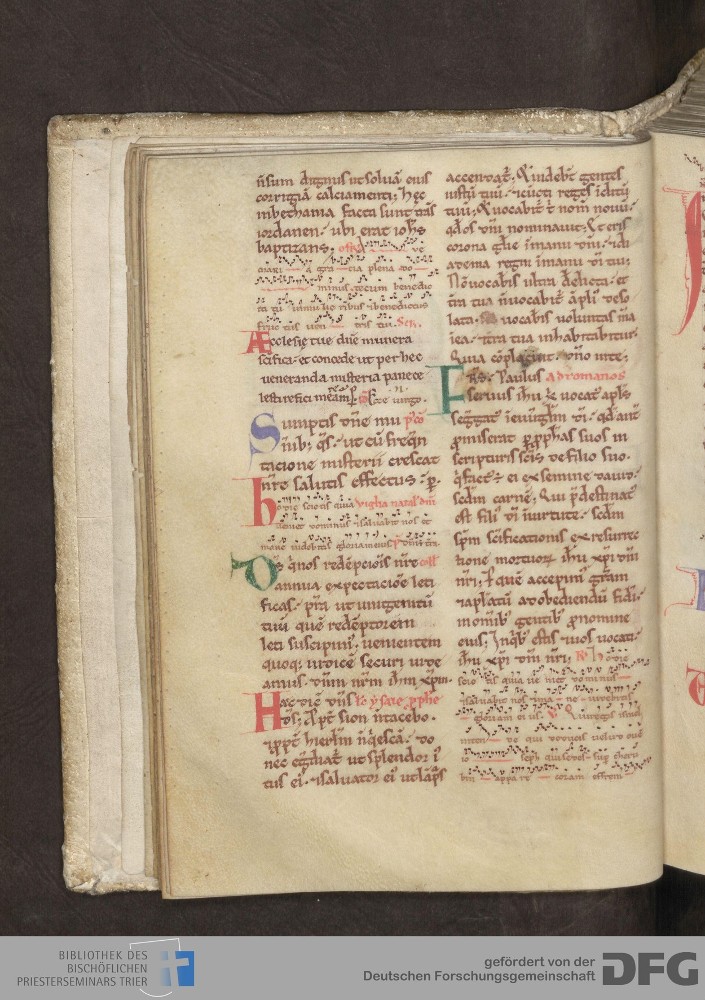 ñ sum dignus ut soluā eius
corrigiā calciamenti; hęc
in bethania facta sunt trās
iordanen · ubi erat iohs
baptizans; offer ve
maria gra cia plena do
minus tecum benedic
ta tu in mulieribus ⁊ benedictus
fructus ven tris tui. Secr.
Æcclesię tue dn̄e munera
sc̄ifica · et concede ut per hec
ueneranda misteria pane ce
lesti refici
Sumptis dn̄e mu pꝰ cō
nib; qs̄ · ut cū freqūn
tacione misterii crescat
nr̄e salutis effectus · p̄.
hodie scietis quia vigilia natal dn̄i
veniet dominus ⁊ saluabit nos et
mane videbitis gloriam eius
Ds̄ q̇ nos redēpcionis nr̄e coll
annua expectacione leti
ficas · pr̄a ut unigenitū
tuū quē redēptorem
leti suscipim; uenientem
quoq; iudicē securi uide
amus · dn̄m nr̄m ihm xpm·
Hæc dic̄ dn̄s ysaie prophe
Sion n̄ tacebo·
⁊ ꝓpt̄ hierlm̄ n̄ q̇escā · do
nec egrediat̄ ut splendor i
tus ei · ⁊ saluator ei ut lāpas
accendat̄; Et uidebt̄ gentes
iustū tuū · ⁊ cūcti reges īclitū
tuū; Et uocabit̄ t̄ nom̄ nouū·
qd̄ os dn̄i nominauit; Et eris
corona glīe ī manu dn̄i · ⁊ di
adema regni ī manu dī tui;
Nō uocabis ultra d̄elicta · et
t̄ra tua n̄ uocabit̄ āpli deso
lata · uocabis uoluntas m̄a
ī ea · ⁊ t̄ra tua inhabitabitur·
Quia cōplacuit dn̄o in te;
Frs̄ · Paulus ad romanos
seruus ihu xp̄ uocat̄ apls̄
segregat̄ ī euuāglm̄ dī · qd̄ ant̄
ꝓmiserat ꝑ ꝓph̄as suos in
scripturis sc̄is de filio suo·
q̇ fact̄ ÷ ei ex semine dauid·
scdm̄ carnē; Qui p̄destinat̄
est fili dī in uirtute · scdm̄
spm̄ sc̄ificationis ex resurrec
tione mortuoꝝ ihu xpī dn̄i
nr̄i; ꝑ quē accepim gr̄am
⁊ aplatū ad obediendū fidi·
in omnib gentib ꝓ nomine
eius; In q̇b; estis ⁊ uos uocati·
ihu xpī dn̄i nr̄i; R̄ Hodie
scie tis quia ve niet dominus
⁊ saluabit nos ⁊ ma ne videbitis
gloriam ei us · V Qui regis israel
inten de qui deducis uelud oue
io seph qui sedes sup̄ cheru
bin appa re coram effrem
BIBLIOTHEK DES
BISCHÖFLICHEN
PRIESTERSEMINARS TRIER
gefördert von der
Deutschen Forschungsgemeinschaft
DFG